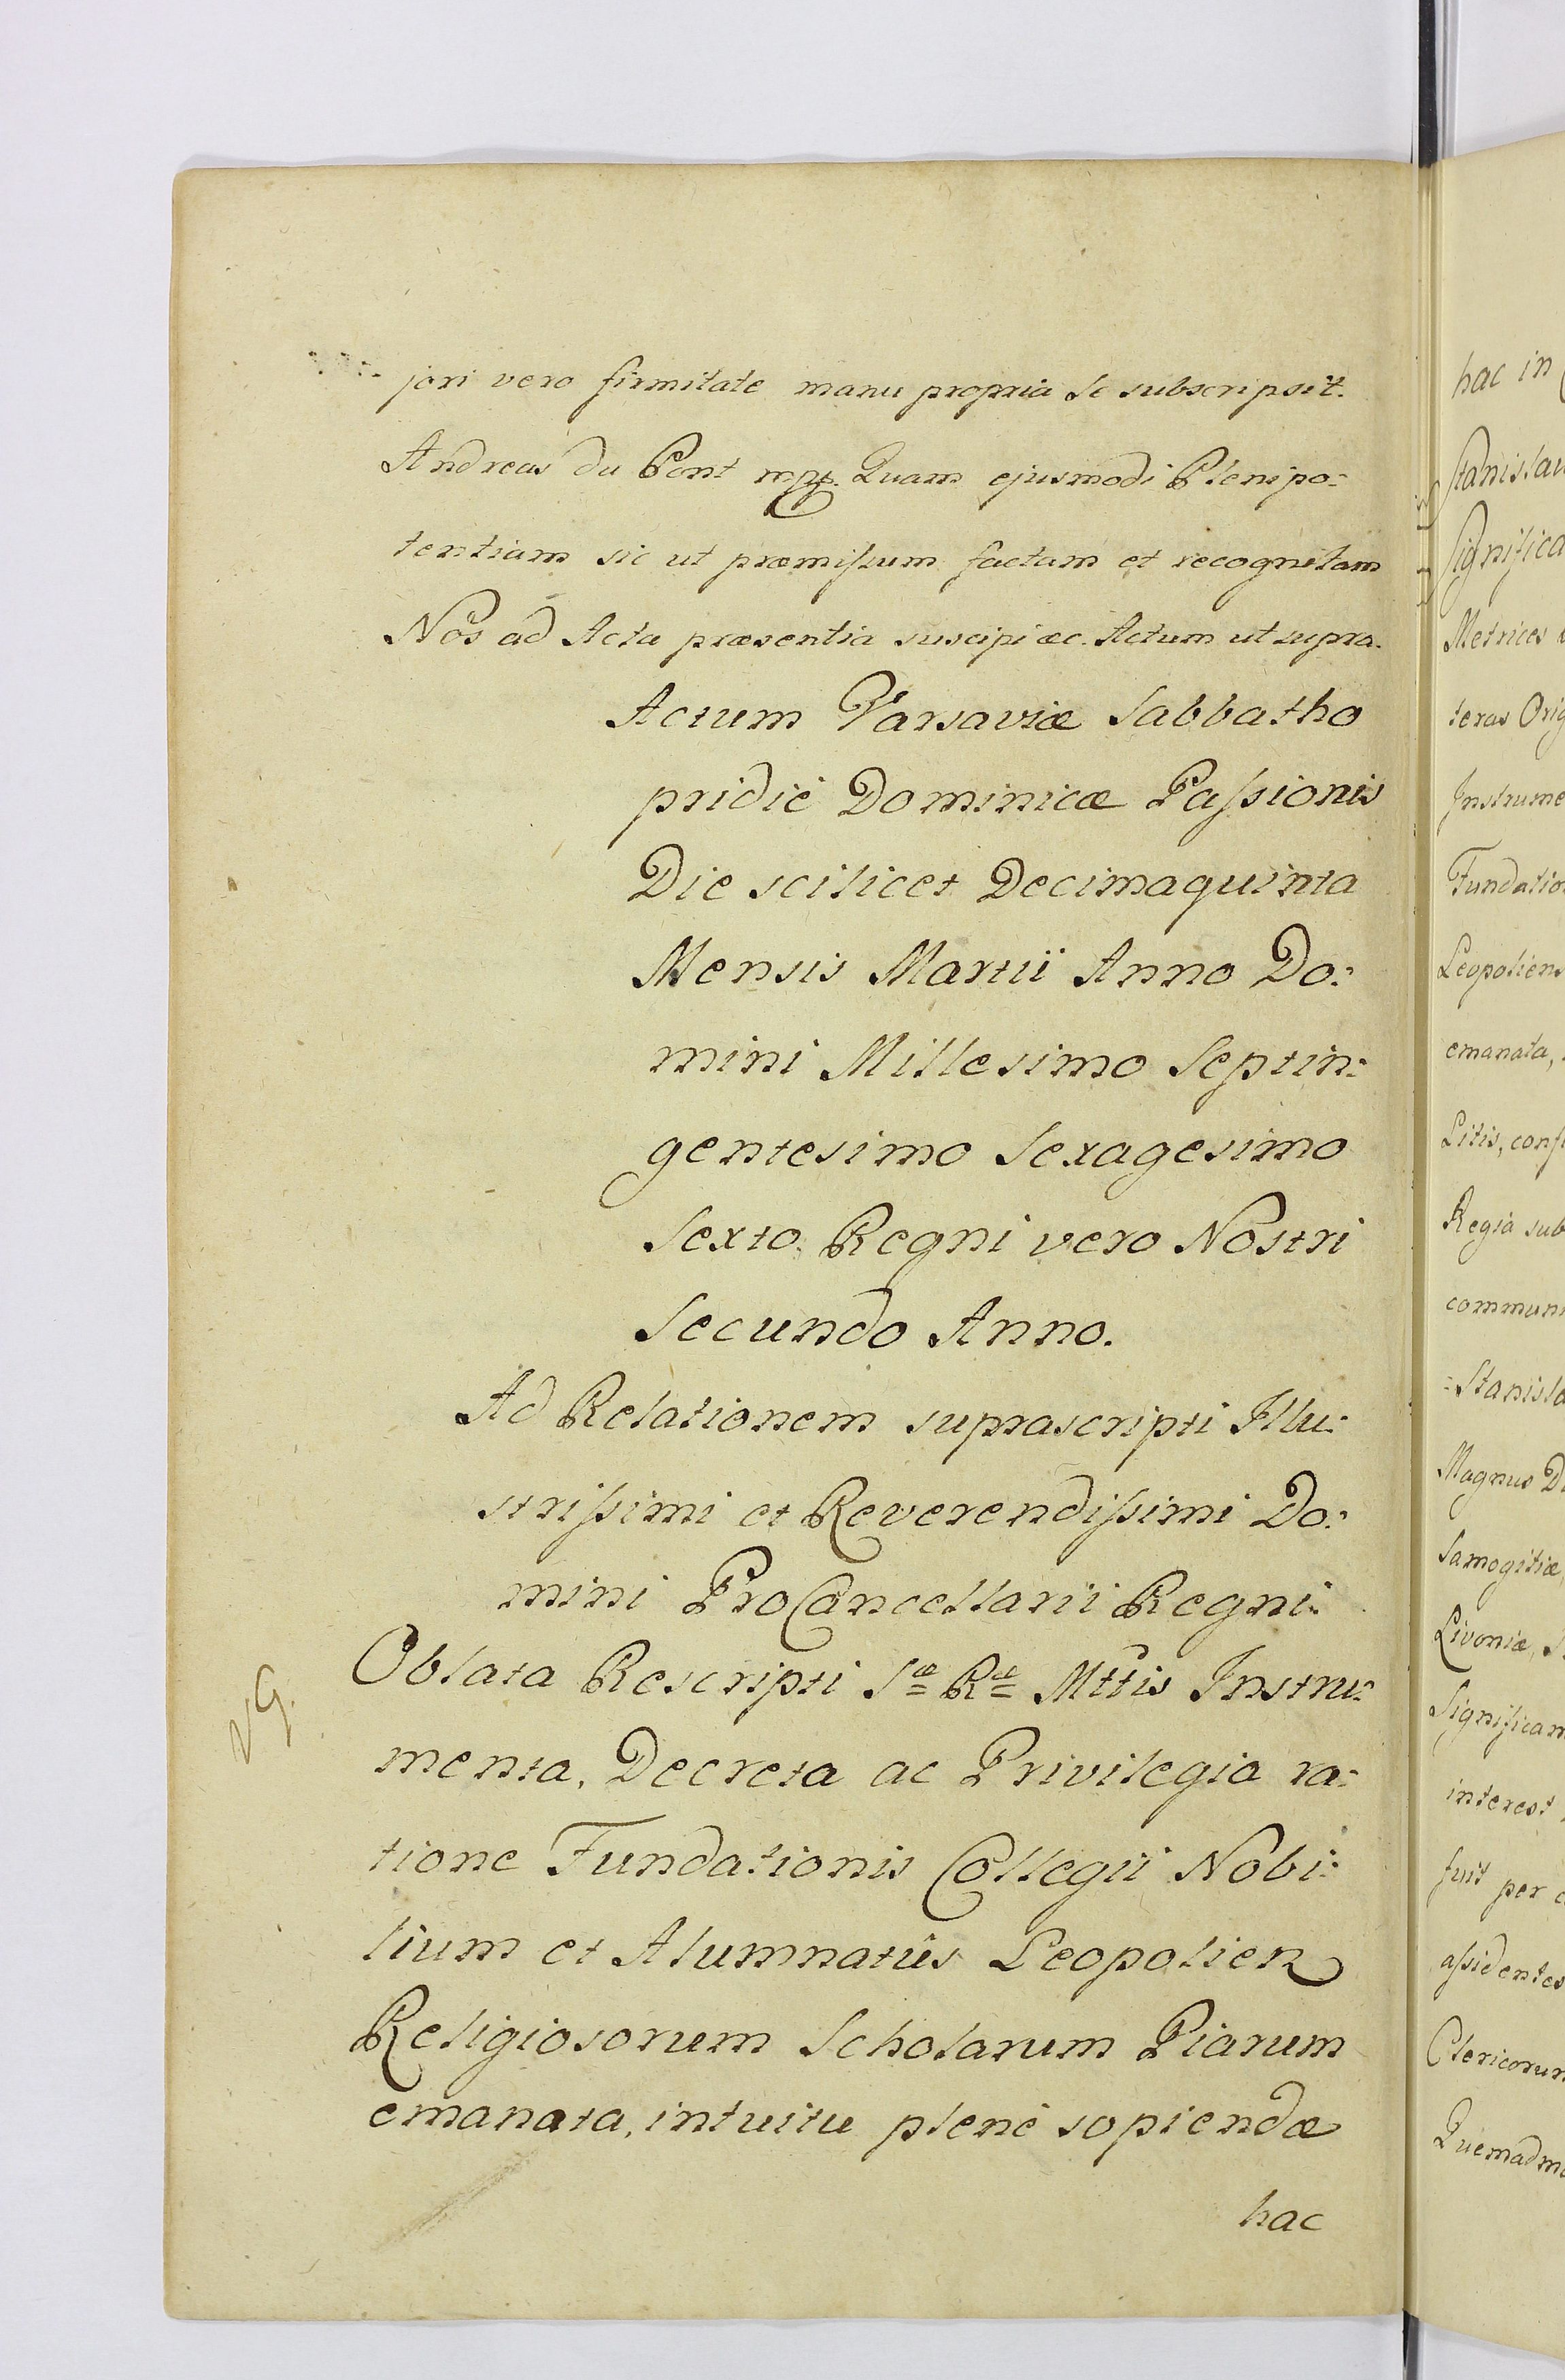 jori vero firmitate manu propria Se subscripsit.
Andreas du Pont mpp. Quam ejusmodi Plenipo:
tentiam sic ut præmissum factam et recognitam
Nos ad Acta præsentia suscipi æc. Actum ut supra.
Actum Varsaviæ Sabbatho
pridiè Dominicæ Passionis
Die scilicet Decimaquinta
Mensis Martii Anno Do:
mini Millesimo Septin:
gentesimo Sexagesimo
Sexto. Regni vero Nostri
Secundo Anno.
Ad Relationem suprascripti Illu:
strissimi et Reverendissimi Do:
mini ProCancellarii Regni.
Oblata Rescripti Sæ Ræ Mttis Instru:
menta, Decreta ac Privilegia ra:
tione Fundationis Collegii Nobi:
lium et Alumnatûs Leopolien
Religiosorum Scholarum Piarum
emanata, intuitu plenè sopiendæ
hac
VG.
hac in
Stanislau
Significa
Metrices
teras Orig
Instrume
Fundatio
Leopoliens
emanata,
Litis, conf
Regia sub
communi
:Stanisla
Magnus D
Samogitiæ
Livoniæ, S
Significam
interest
fuit per c
assidentes
Clericorum
Quemadmo